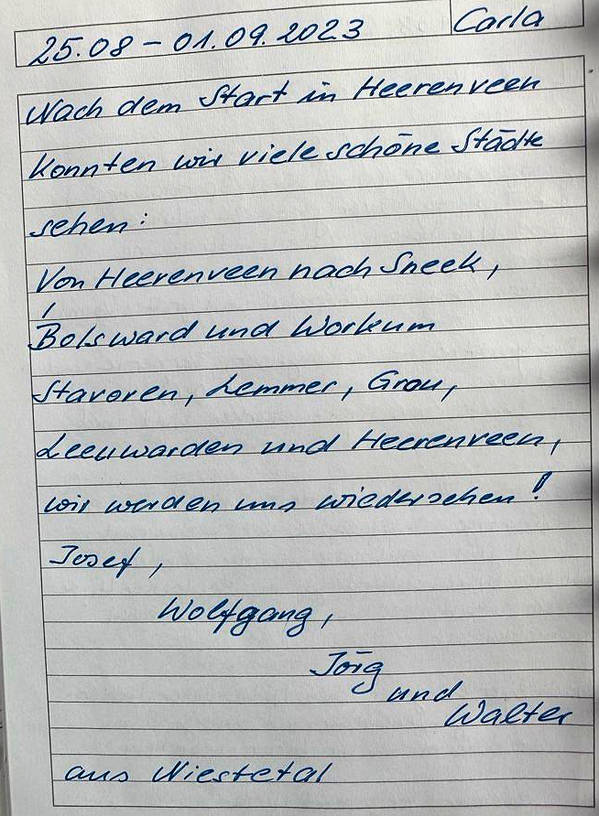 25.08 – 01.09.2023 Carla
Nach dem Start in Heerenveen
konnten wir viele schöne Städte
sehen:
Von Heerenveen nach Sneek,
Bolsward und Workum
Stavoren, Lemmer, Grou,
Leeuwarden und Heerenveen,
wir werden uns wiedersehen!
Josef,
Wolfgang,
Jörg
und
Walter
aus Niestetal